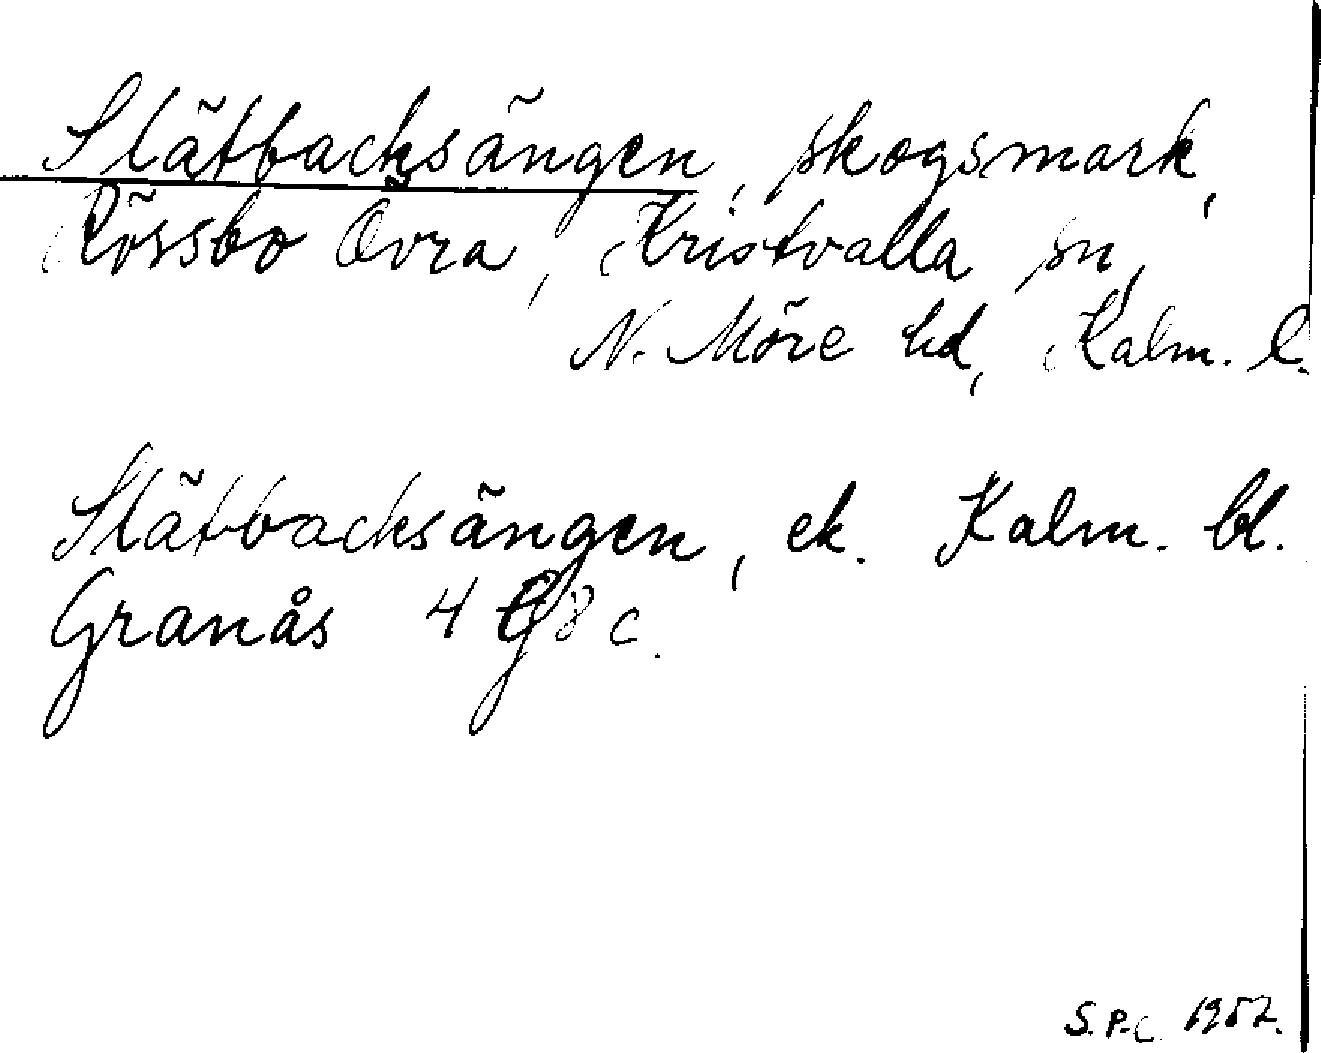 Slätbacksängen, skogsmark,
Rössbo Övra, Kristvalla sn,
N. Möre hd, Kalm. l.
Slätbacksängen, ek. Kalm. bl.
Granås 4 g 8 c.
S.P.C. 1952.